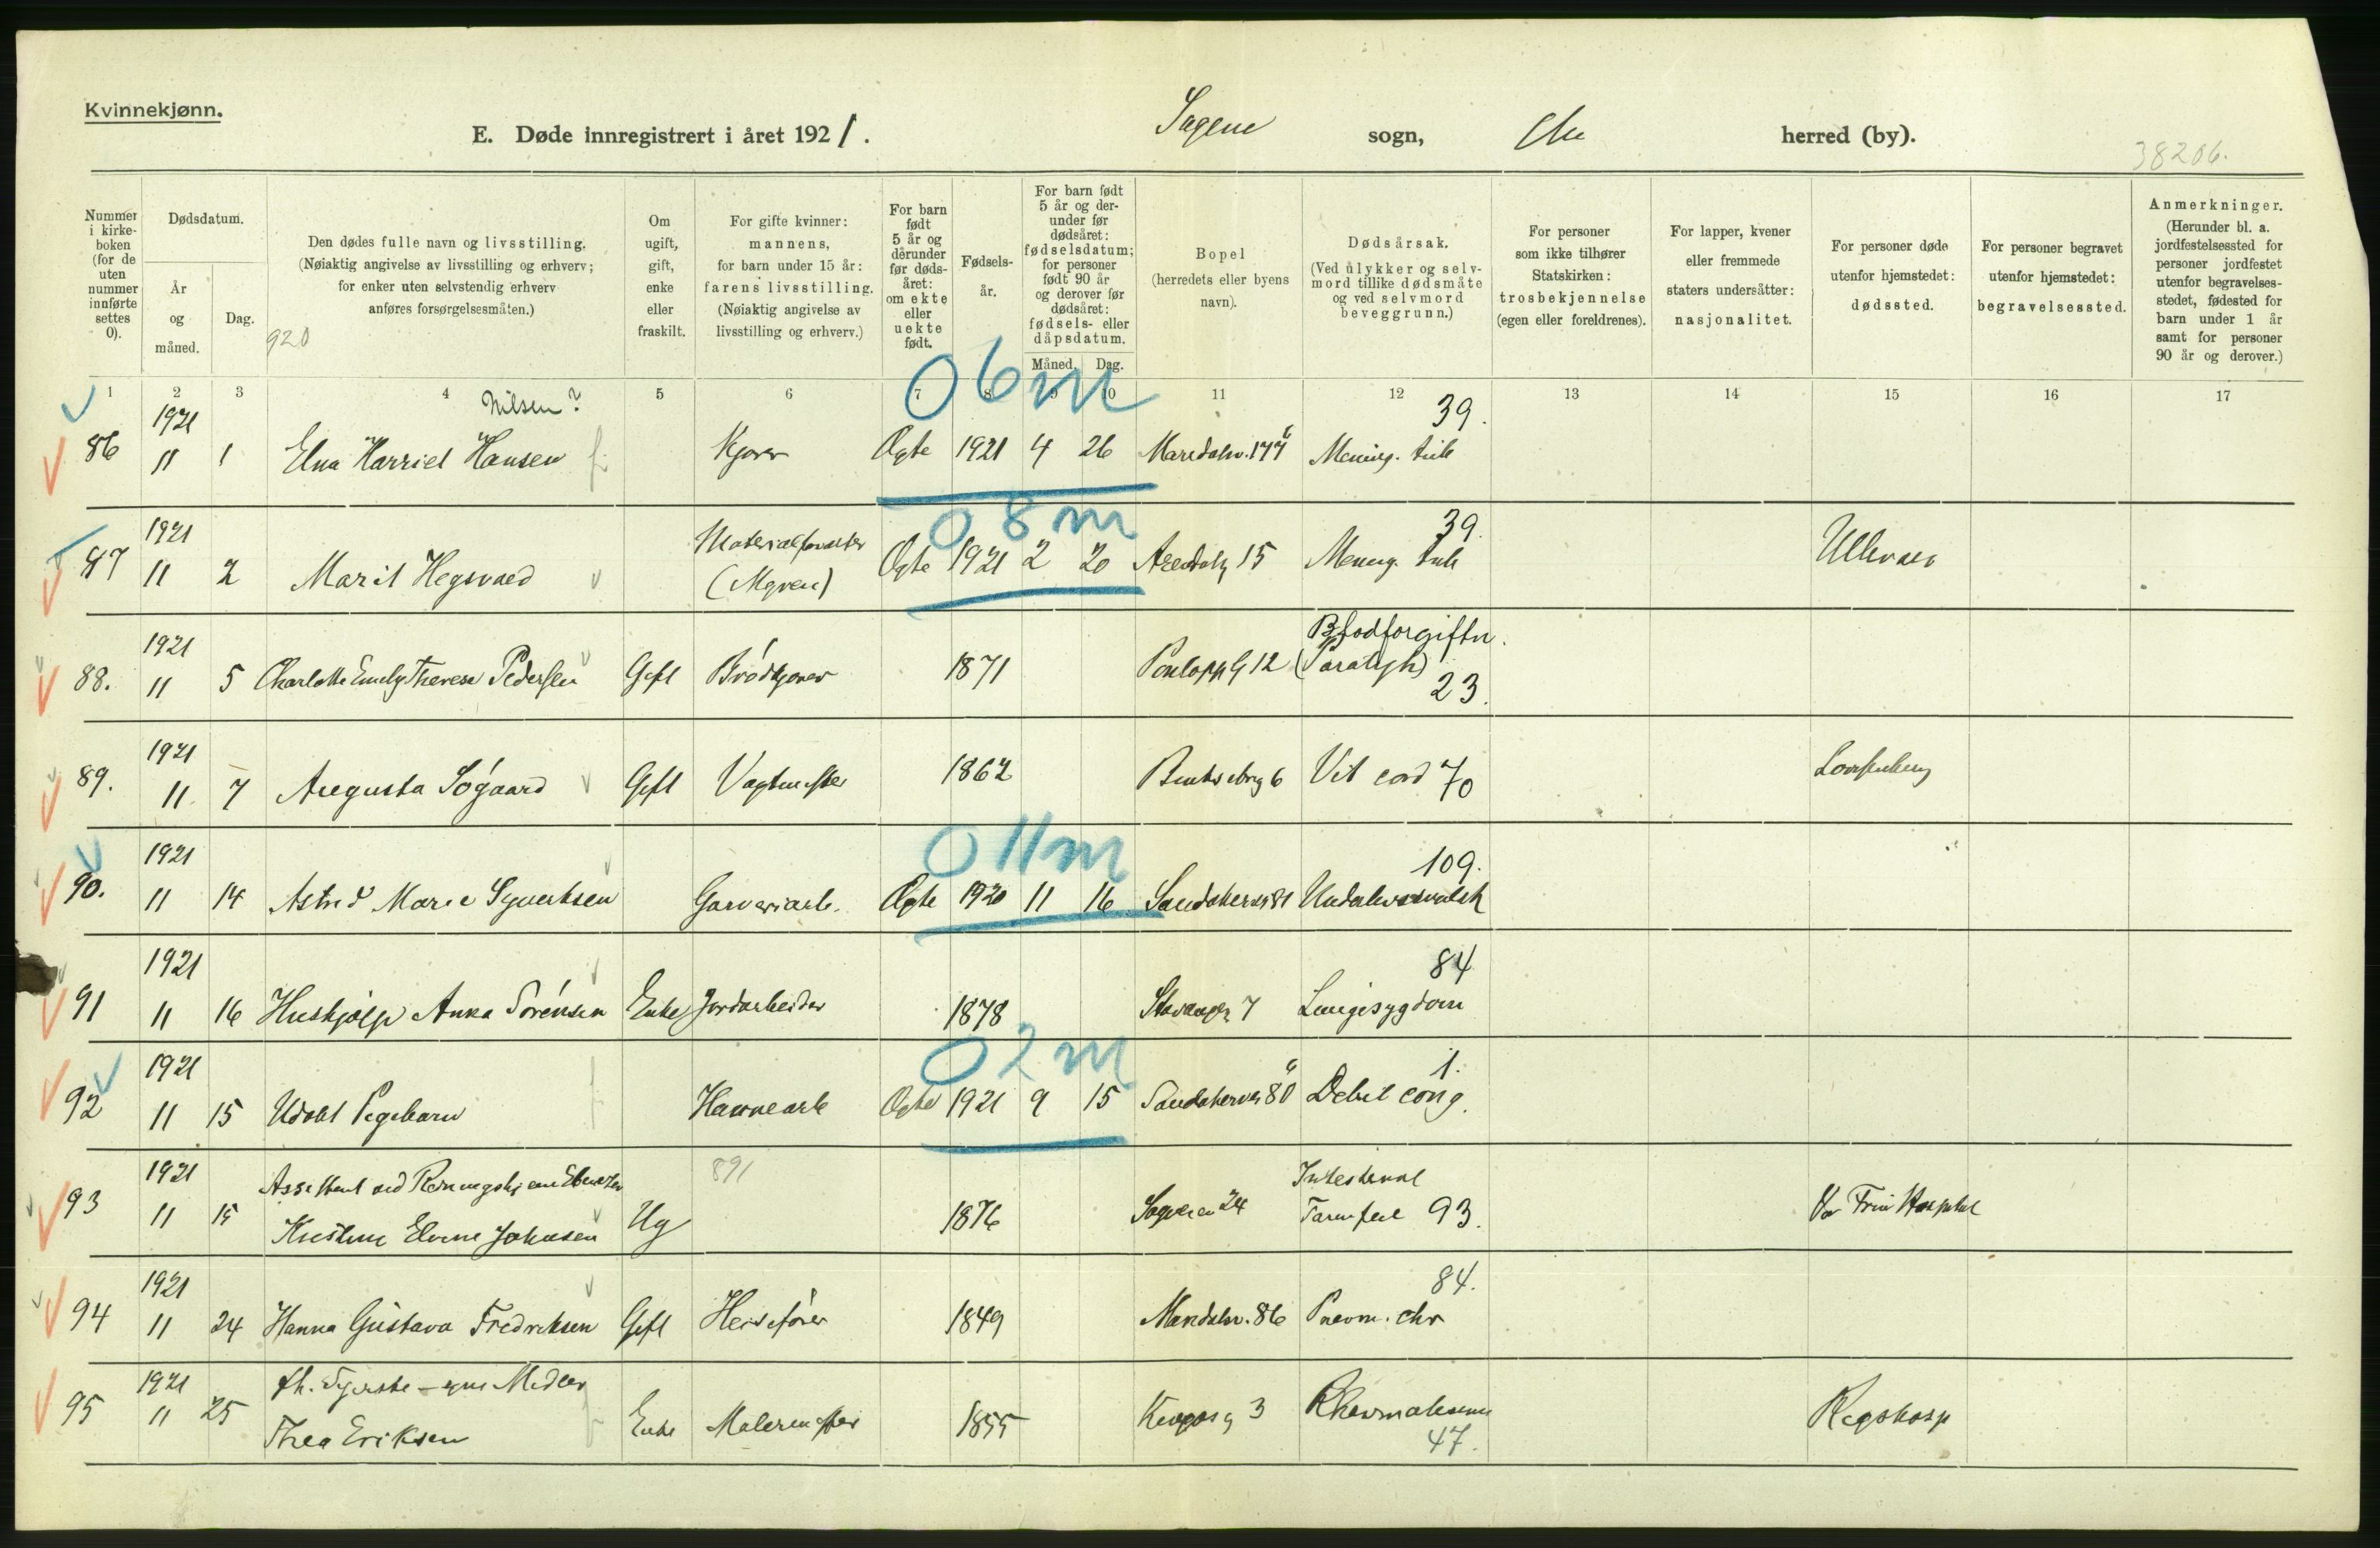 Kvinnekjønn.
E. Døde innregistrert i året 1921. Sagene sogn, herred (by).
38206.
Nummer i kirkeboken (for de uten nummer innførte settes 0).
Dødsdatum.
År og måned.
Dag.
Den dødes fulle navn og livsstilling. (Nøiaktig angivelse av livsstilling og erhverv; for enker uten selvstendig erhverv anføres forsørgelsesmåten.)
920
Om ugift, gift, enke eller fraskilt.
For gifte kvinner: mannens, for barn under 15 år: farens livsstilling. (Nøiaktig angivelse av livsstilling og erhverv.)
For barn født 5 år og derunder før dødsåret: om ekte eller uekte født.
Fødselsår.
For barn født 5 år og derunder før dødsåret: fødselsdatum; for personer født 90 år og derover før dødsåret: fødsels- eller dåpsdatum.
Måned. Dag.
Bopel (herredets eller byens navn).
Dødsårsak. (Ved ulykker og selvmord tillike dødsmåte og ved selvmord beveggrunn.)
For personer som ikke tilhører Statskirken: trosbekjennelse (egen eller foreldrenes).
For lapper, kvener eller fremmede staters undersåtter: nasjonalitet.
For personer døde utenfor hjemstedet: dødssted.
For personer begravet utenfor hjemstedet: begravelsessted.
Anmerkninger. (Herunder bl. a. jordfestelsessted for personer jordfestet utenfor begravelsesstedet, fødested for barn under 1 år samt for personer 90 år og derover.)
1 2 3 4 5 6 7 8 9 10 11 12 13 14 15 16 17
Nilsen? 06m 39.
86 1921 11 1 Elna Harriet Hansen Kjører Ægte 1921 4 26 Maridalsv. 177 Mening. tub
08m 39.
87 1921 11 2 Marit Hegsvaed Materialforvalter (Mgren) Ægte 1921 2 20 Arendalsg 15 Mening. tub Ullevaal
88. 1921 11 5 Charlotte Emely Therese Pedersen Gift Brødkjører 1871 12 Blodforgiftn. (Paratyph) 23.
89. 1921 11 7 Augusta Søgaard Gift Vagtmester 1862 Bentsebrg 6 Vit cord 70 Lovisenberg
011m 109.
90. 1921 11 14 Astrid Marie Syvertsen Garveriarb. Ægte 1920 11 16 Sandakerv 81
84
91 1921 11 16 Hushjælp Anna Sørensen Enke Jordarbeider 1878 Stavangg 7 Lungesygdom
02m 1.
92 1921 11 15 Udøbt Pigebarn Havnearb Ægte 1921 9 15 Sandakervei 80 Debil cong.
891
93 1921 11 15 Assistent ved Redningshjem Ebenezer Kristine Elvine Johansen Ug 1876 Sagveien 24 Intestinal Tarmfeil 93. Vor Frue Hospital
84.
94 1921 11 24 Hanna Gustava Fredriksen Gift Heisefører 1849 Maridalsv. 86 Pnevm. chr
95 1921 11 25 fh. Syerske - egne Midler Thea Eriksen Enke Malermester 1855 3 Rhevmatisme 47. Rigshosp